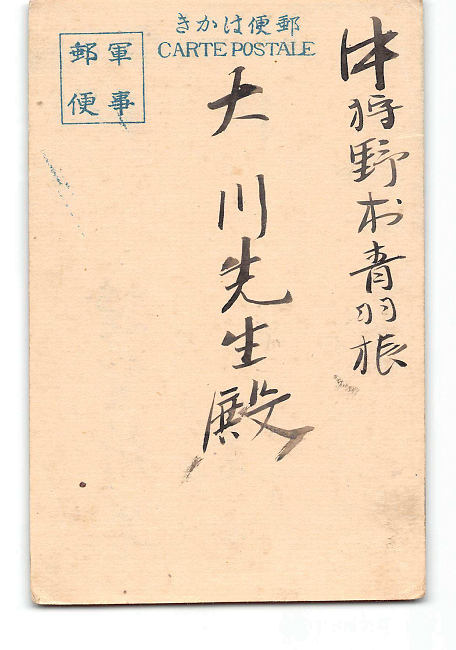 郵便はかき
CARTE POSTALE
軍事
郵便
中狩野村青羽根
大川先生殿